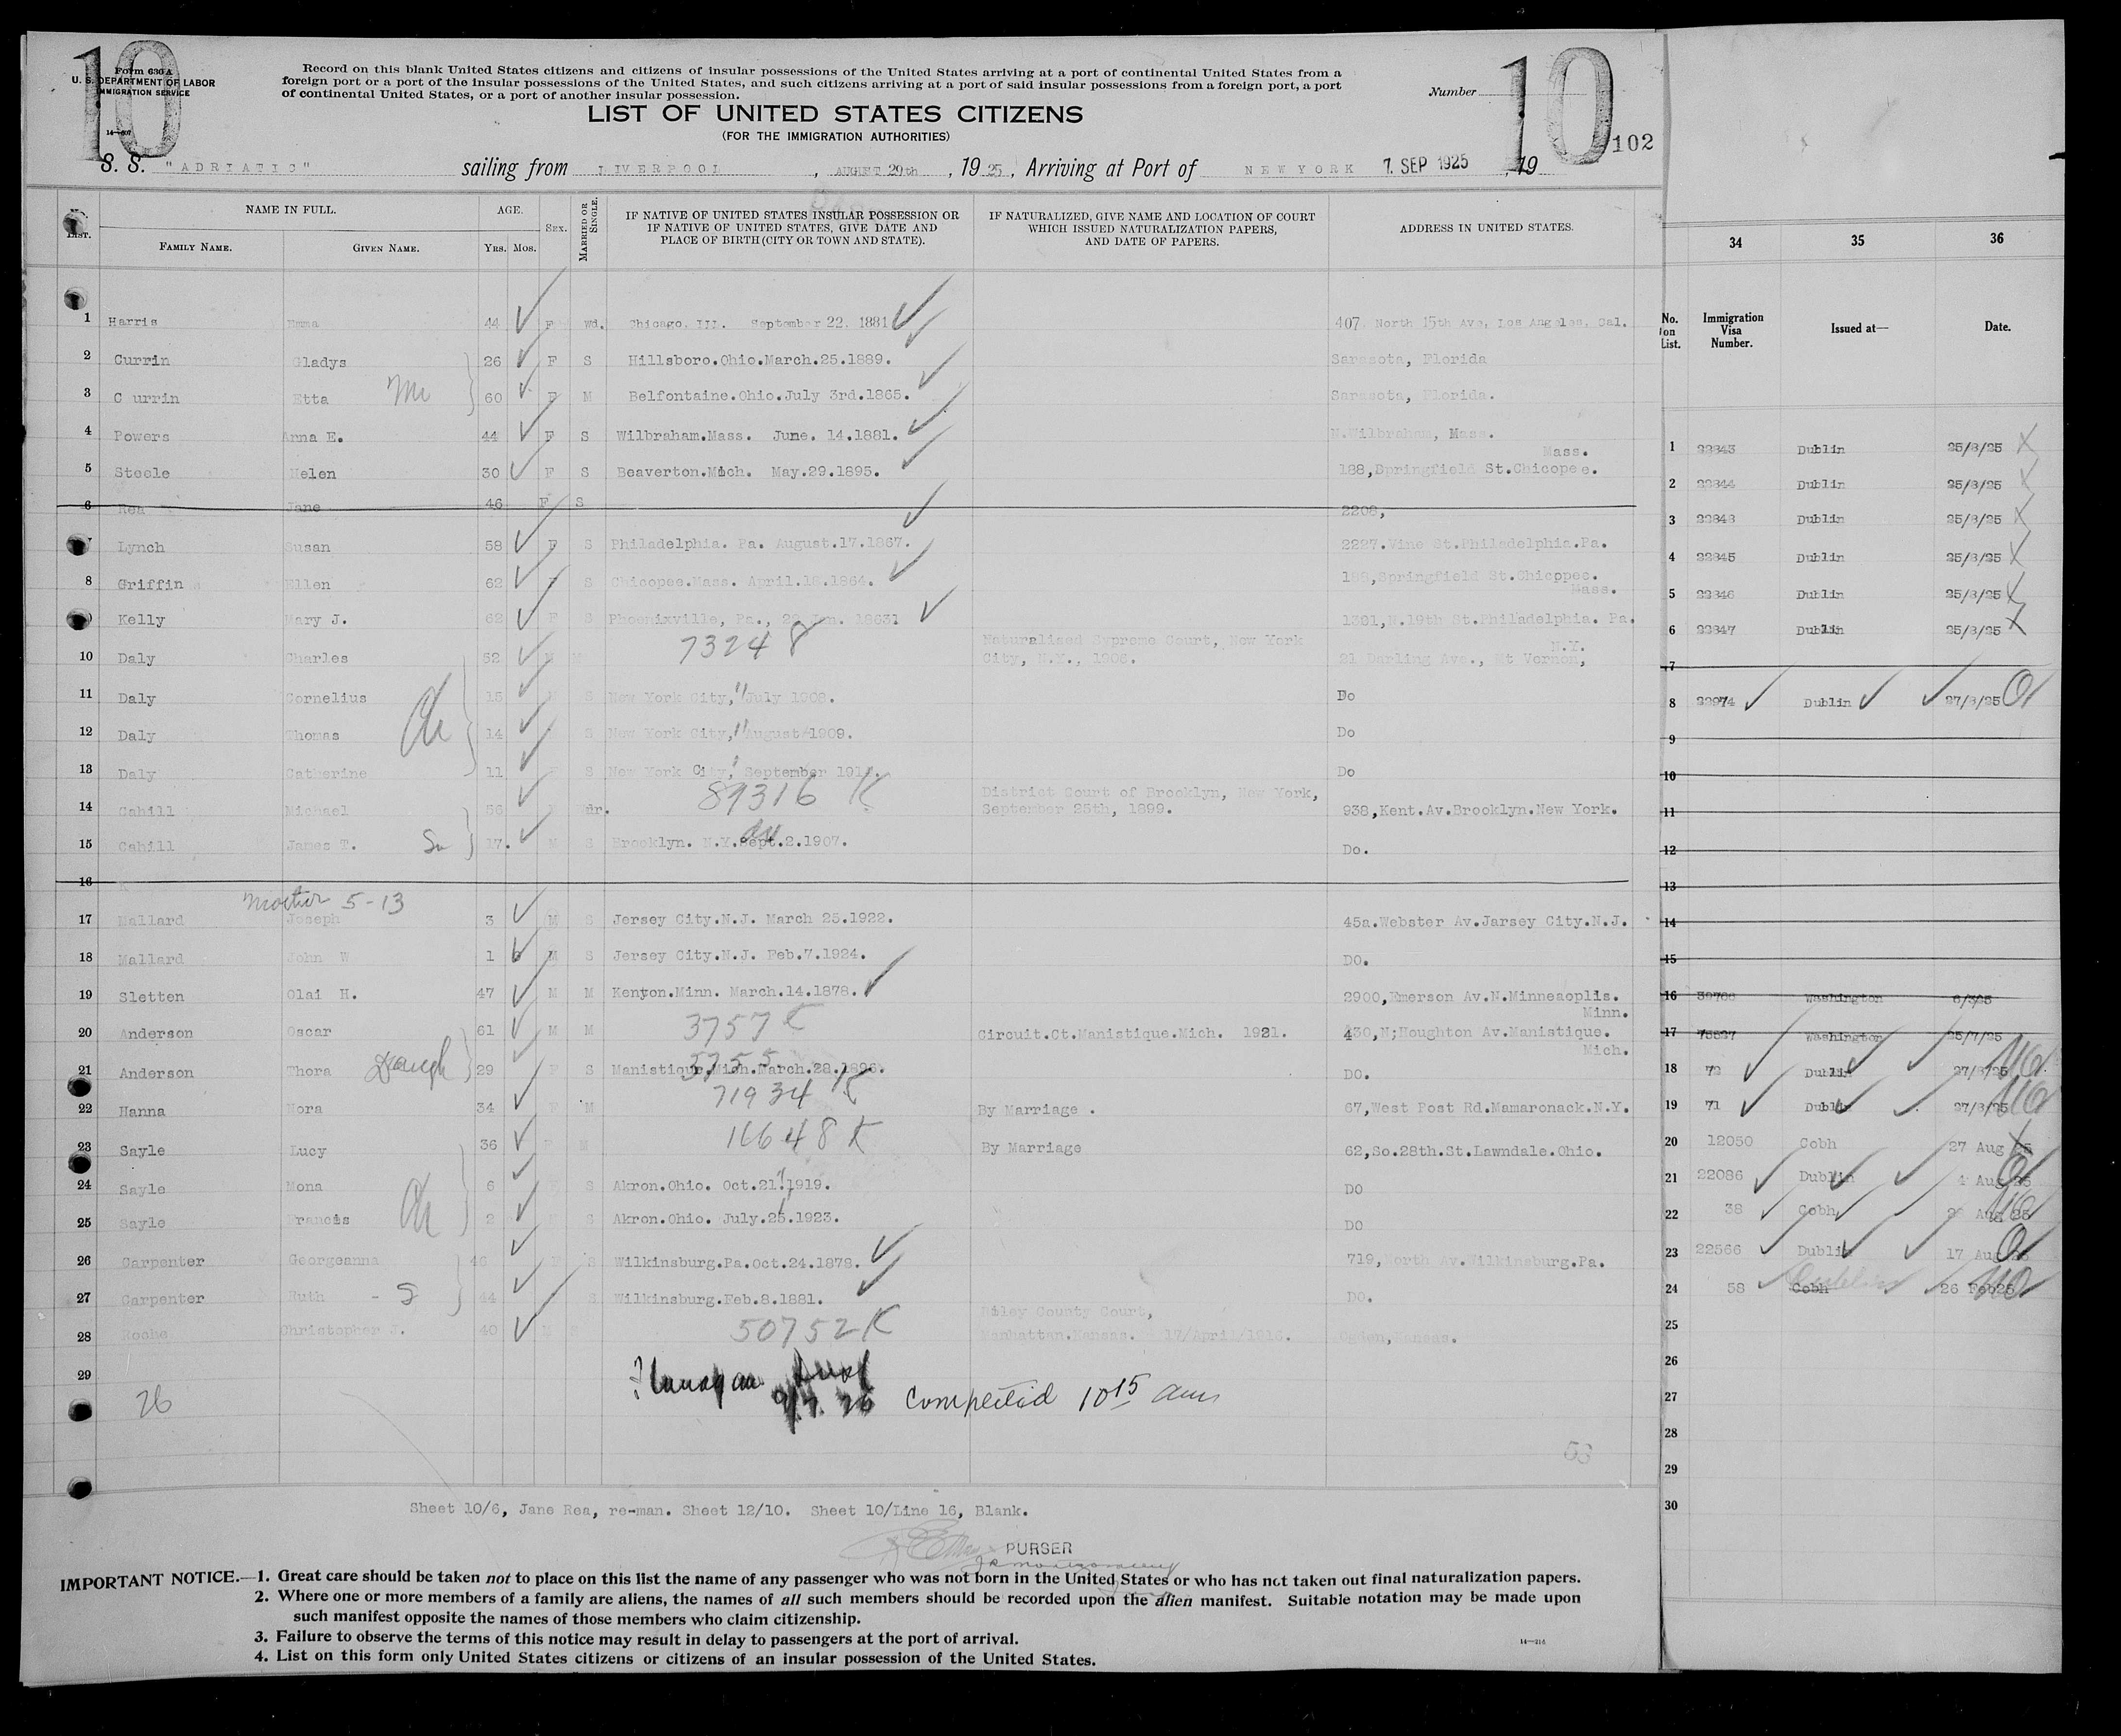 10
Form 630 A
U. S. DEPARTMENT OF LABOR
IMMIGRATION SERVICE
14—607
Record on this blank United States citizens and citizens of insular possessions of the United States arriving at a port of continental United States from a
foreign port or a port of the insular possessions of the United States, and such citizens arriving at a port of said insular possessions from a foreign port, a port
of continental United States, or a port of another insular possession.
Number
10
102
LIST OF UNITED STATES CITIZENS
(FOR THE IMMIGRATION AUTHORITIES)
S. S. "ADRIATIC" sailing from LIVERPOOL, AUGUST 29th, 1925, Arriving at Port of NEW YORK 7. SEP 1925, 19
No. LIST. NAME IN FULL. AGE. SEX. MARRIED OR SINGLE. IF NATIVE OF UNITED STATES INSULAR POSSESSION OR IF NATIVE OF UNITED STATES, GIVE DATE AND PLACE OF BIRTH (CITY OR TOWN AND STATE). IF NATURALIZED, GIVE NAME AND LOCATION OF COURT WHICH ISSUED NATURALIZATION PAPERS, AND DATE OF PAPERS. ADDRESS IN UNITED STATES.
FAMILY NAME. GIVEN NAME. YRS. MOS.
1 Harris Emma 44 F Wd. Chicago, Ill. September 22. 1881 407 North 15th Ave, Los Angeles, Cal.
2 Currin Gladys 26 F S Hillsboro.Ohio.March.25.1889. Sarasota, Florida
3 C urrin Etta 60 F M Belfontaine.Ohio.July 3rd.1865. Sarasota, Florida.
4 Powers Anna E. 44 F S Wilbraham.Mass. June. 14.1881. N.Wilbraham, Mass.
5 Steele Helen 30 F S Beaverton.Mich. May.29.1895. 188,Springfield St.Chicopee. Mass.
6 Rea Jane 46 F S 2208,
7 Lynch Susan 58 F S Philadelphia. Pa. August.17.1867. 2227.Vine St.Philadelphia.Pa.
8 Griffin Ellen 62 F S Chicopee.Mass. April.18.1864. 188,Springfield St.Chicopee. Mass.
9 Kelly Mary J. 62 F S Phoenixville, Pa., 22 Jan. 1863 1321,N.19th St.Philadelphia. Pa.
10 Daly Charles 52 M M 73248 Naturalised Supreme Court, New York City, N.Y., 1906. 21 Darling Ave., Mt Vernon, N.Y.
11 Daly Cornelius 15 M S New York City, July 1908. Do
12 Daly Thomas 14 S New York City, August 1909. Do
13 Daly Catherine 11 S New York City, September Do
14 Cahill Michael 56 Wdr. 89316 K District Court of Brooklyn, New York, September 25th, 1899. 938,Kent.Av.Brooklyn.New York.
15 Cahill James T. 17. M S Brooklyn. N.Y.Sept.2.1907. Do.
16
Mother 5-13
17 Mallard Joseph 3 M S Jersey City.N.J. March 25.1922. 45a.Webster Av.Jarsey City.N.J.
18 Mallard John W 1 M S Jersey City.N.J. Feb.7.1924. DO.
19 Sletten Olai H. 47 M M Kenyon.Minn. March.14.1878. 2900,Emerson Av.N.Minneaoplis. Minn.
20 Anderson Oscar 61 M M 3757 K Circuit.Ct.Manistique.Mich. 1921. 430,N;Houghton Av.Manistique. Mich.
21 Anderson Thora Daugh 29 F S Manistique.Mich.March.28.1896. DO.
22 Hanna Nora 34 F M 71934 K By Marriage . 67,West Post Rd.Mamaronack.N.Y.
23 Sayle Lucy 36 F M 16648 K By Marriage 62,So.28th.St.Lawndale.Ohio.
24 Sayle Mona 6 S Akron.Ohio. Oct.21.1919. DO
25 Sayle Francis 2 S Akron.Ohio. July.25.1923. DO
26 Carpenter Georgeanna 46 F S Wilkinsburg.Pa.Oct.24.1878. 719,North Av.Wilkinsburg.Pa.
27 Carpenter Ruth - S 44 S Wilkinsburg.Feb.8.1881. DO.
28 Roche Christopher J. 40 50752 K Riley County Court, Manhattan.Kansas. 17/April/1916. Ogden,Kansas.
29
26
Completed 10 15 am
53
Sheet 10/6, Jane Rea, re-man. Sheet 12/10. Sheet 10/Line 16, Blank.
PURSER
IMPORTANT NOTICE.—1. Great care should be taken not to place on this list the name of any passenger who was not born in the United States or who has not taken out final naturalization papers.
2. Where one or more members of a family are aliens, the names of all such members should be recorded upon the alien manifest. Suitable notation may be made upon
such manifest opposite the names of those members who claim citizenship.
3. Failure to observe the terms of this notice may result in delay to passengers at the port of arrival.
14—214
4. List on this form only United States citizens or citizens of an insular possession of the United States.
34 35 36
No. on List. Immigration Visa Number. Issued at— Date.
1 22843 Dublin 25/8/25
2 22844 Dublin 25/8/25
3 22848 Dublin 25/8/25
4 22845 Dublin 25/8/25
5 22846 Dublin 25/8/25
6 22847 Dublin 25/8/25
7
8 22974 Dublin 27/8/25
9
10
11
12
13
14
15
16 Washington
17 Washington 25/7/25
18 72 Dublin 27/8/25
19 71 Dublin 27/8/25
20 12050 Cobh 27 Aug 25
21 22086 Dublin 4 Aug 25
22 38 Cobh Aug 25
23 22566 Dublin 17 Aug
24 58 Cobh Dublin 26 Feb25
25
26
27
28
29
30